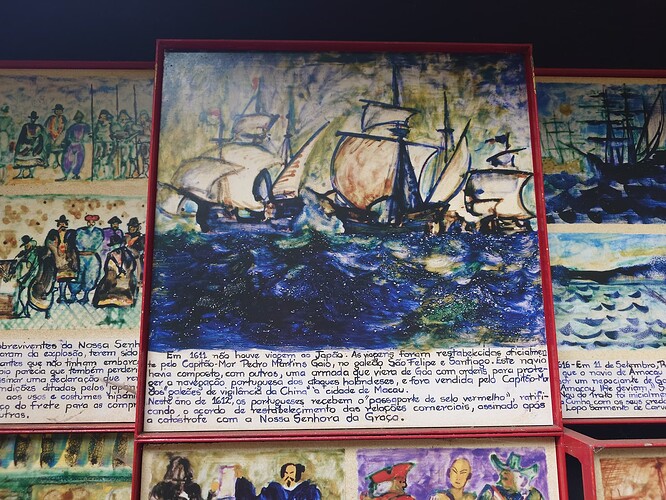 Em 1611 não houve viagem ao Japão. As viagens foram restabelecidas oficialmen-
te pelo Capitão-Mor Pedro Martins Gaio, no galeão São Felipe e Santiago. Este navio
havia composto, com outros, uma armada que viera de Goa com ordens para prote-
ger a navegação portuguesa dos ataques holandeses, e fora vendida pelo Capitão-Mor
dos "galeões de vigilância da China" à cidade de Macau.
Neste ano de 1612, os portugueses recebem o "passaporte de selo vermelho", ratifi-
cando o acordo de restabelecimento das relações comerciais, assinado após
a catástrofe com a Nossa Senhora da Graça.
obreviventes da Nossa Senh
aram da explosão, terem sido
antes que não tinham embarca
na para que também perden
sinar uma declaração que re
ndições ditadas pelos Japon
aos usos e costumes nipóni
ço do frete para a compr
utras.
616- Em 11 de Setembro, R
que o navio de Amacau
or um negociante de G
Amacau lhe deviam. S
do trato foi inicialmen
Cunha com os seus cred
Lopo Sarmento de Carv